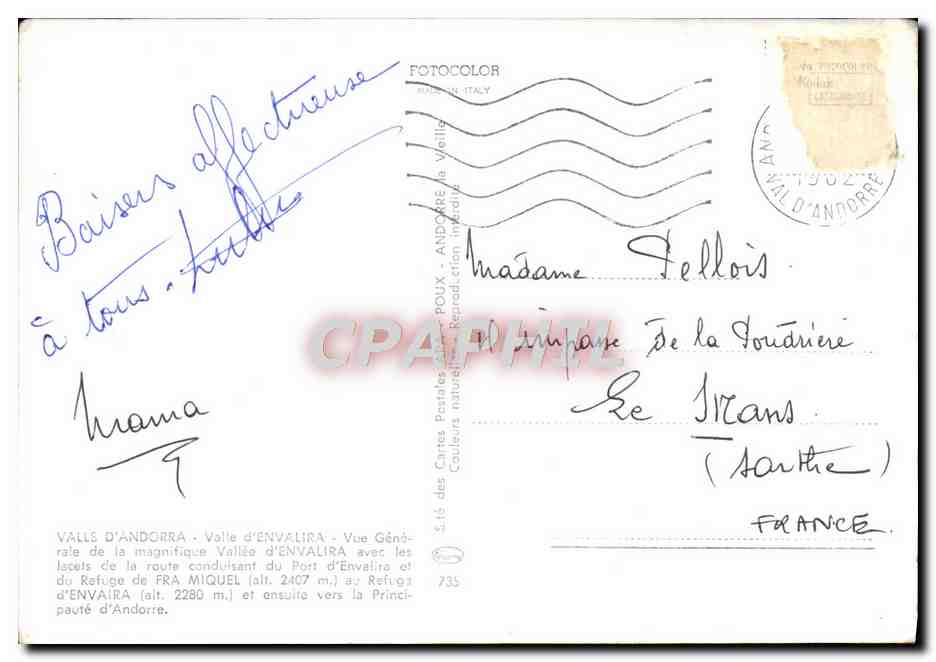 Baisers affectueuse
à tous.
Mama
FOTOCOLOR
MADE IN ITALY
VAL D'ANDORRE
Kodak
Madame Pellois.
11 impasse de la Poudrière
Le Mans.
(Sarthe)
FRANCE.
CPAPHIL
S.té des Cartes Postales APA - POUX - ANDORRE la Vieille
Couleurs naturelles - Reproduction interdite
VALLS D'ANDORRA - Valle d'ENVALIRA - Vue Géné-
rale de la magnifique Vallée d'ENVALIRA avec les
lacets de la route conduisant du Port d'Envalira et
du Refuge de FRA MIQUEL (alt. 2407 m.) au Refuge
d'ENVAIRA (alt. 2280 m.) et ensuite vers la Princi-
pauté d'Andorre.
735